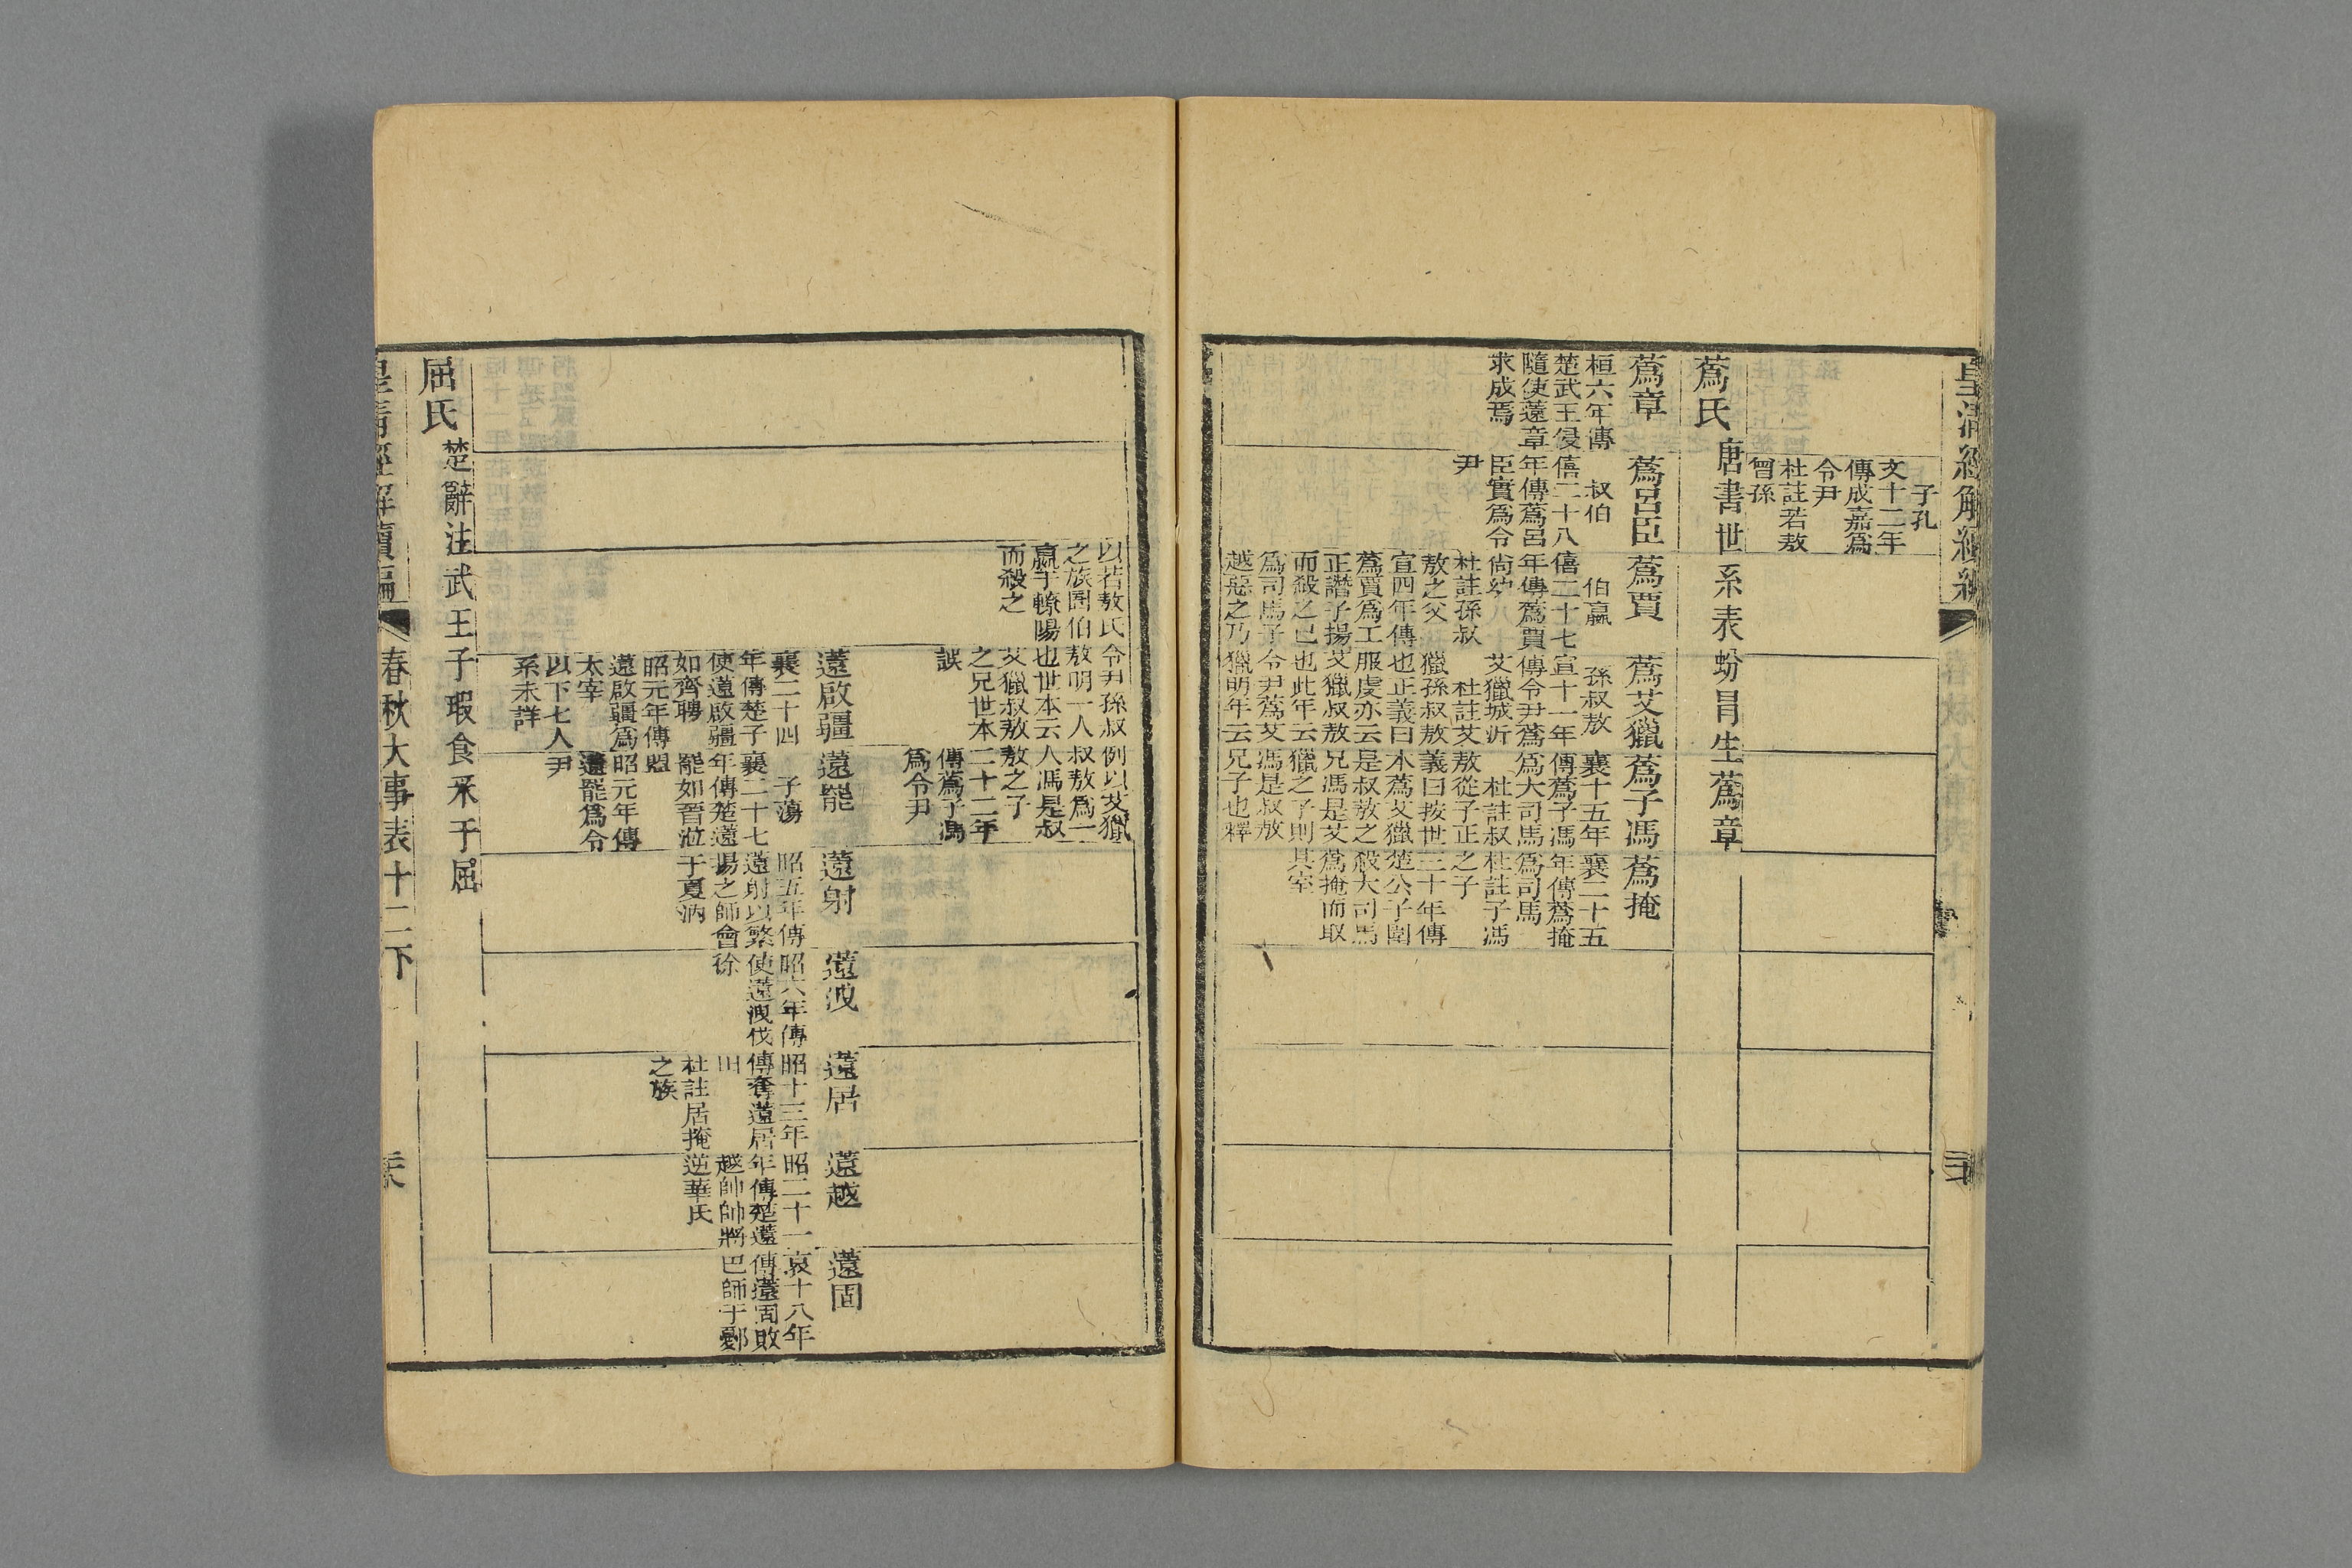 皇清經解續編
子孔
文十二年
傳成嘉爲
令尹
杜註若敖
曾孫
蒍氏
唐書世系表蚡冒生蒍章
蒍章
桓六年傳
楚武王侵
隨使薳章
求成焉
蒍呂臣
叔伯
僖二十八
年傳蒍呂
臣實爲令
尹
蒍賈
伯嬴
僖二十七
年傳蒍賈
尚幼
杜註孫叔
敖之父
宣四年傳
蒍賈爲工
正譖子揚
而殺之己
爲司馬子
越惡之乃
蒍艾獵
孫叔敖
宣十一年
傳令尹蒍
艾獵城沂
杜註艾
獵孫叔敖
也正義曰
服虔亦云
艾獵叔敖
也此年云
令尹蒍艾
獵明年云
蒍子馮
襄十五年
傳蒍子馮
爲大司馬
杜註叔
敖從子正
義曰按世
本蒍艾獵
是叔敖之
兄馮是艾
獵之子則
馮是叔敖
兄子也釋
蒍掩
襄二十五
年傳蒍掩
爲司馬
杜註子馮
之子
三十年傳
楚公子圍
殺大司馬
蒍掩而取
其室
以若敖氏
之族圄伯
嬴于轑陽
而殺之
令尹孫叔
敖明一人
也世本云
艾獵叔敖
之兄世本
誤
例以艾獵
叔敖爲一
人馮是叔
敖之子
二十二年
傳蒍子馮
爲令尹
薳啟疆
襄二十四
年傳楚子
使薳啟疆
如齊聘
昭元年傳
薳啟疆爲
太宰
以下七人
系未詳
薳罷
子蕩
襄二十七
年傳楚薳
罷如晉涖
盟
昭元年傳
薳罷爲令
尹
薳射
昭五年傳
薳射以繁
揚之師會
于夏汭
薳洩
昭六年傳
使薳洩伐
徐
薳居
昭十三年
傳奪薳居
田
杜註居掩
之族
薳越
昭二十一
年傳楚薳
越帥師將
逆華氏
薳固
哀十八年
傳薳固敗
巴師于鄾
屈氏
楚辭注武王子瑕食采于屈
皇清經解續編
春秋大事表十二下